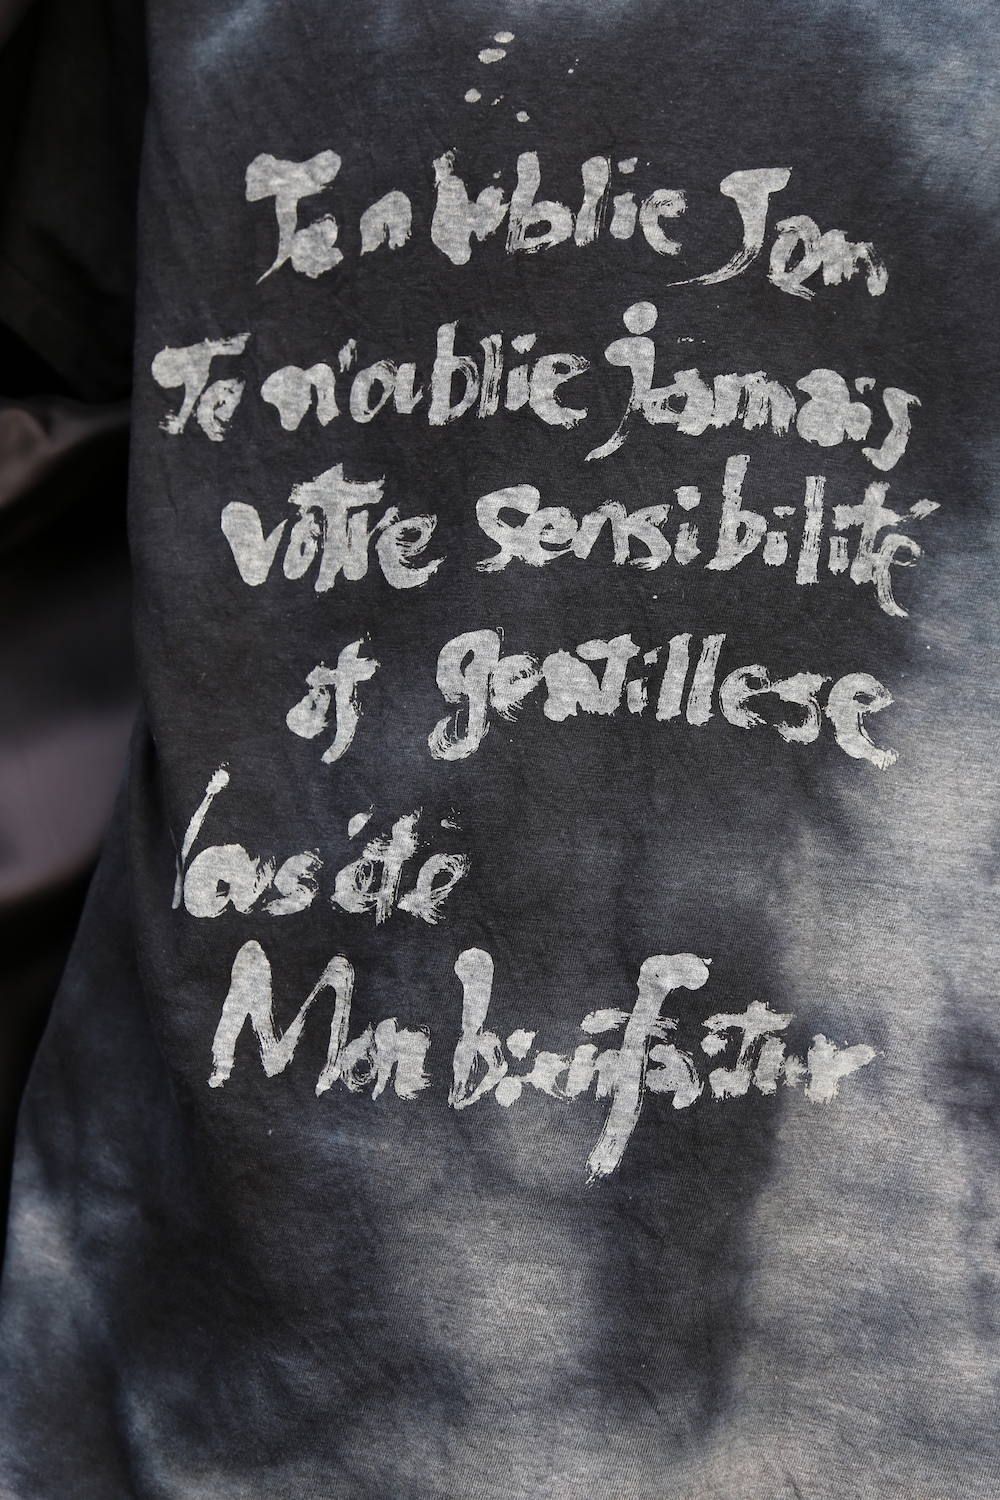 Te n'ublie Jam
Te n'ablie jamais
votre sensibilité
et gentillese
las été
Mon bienfaitur